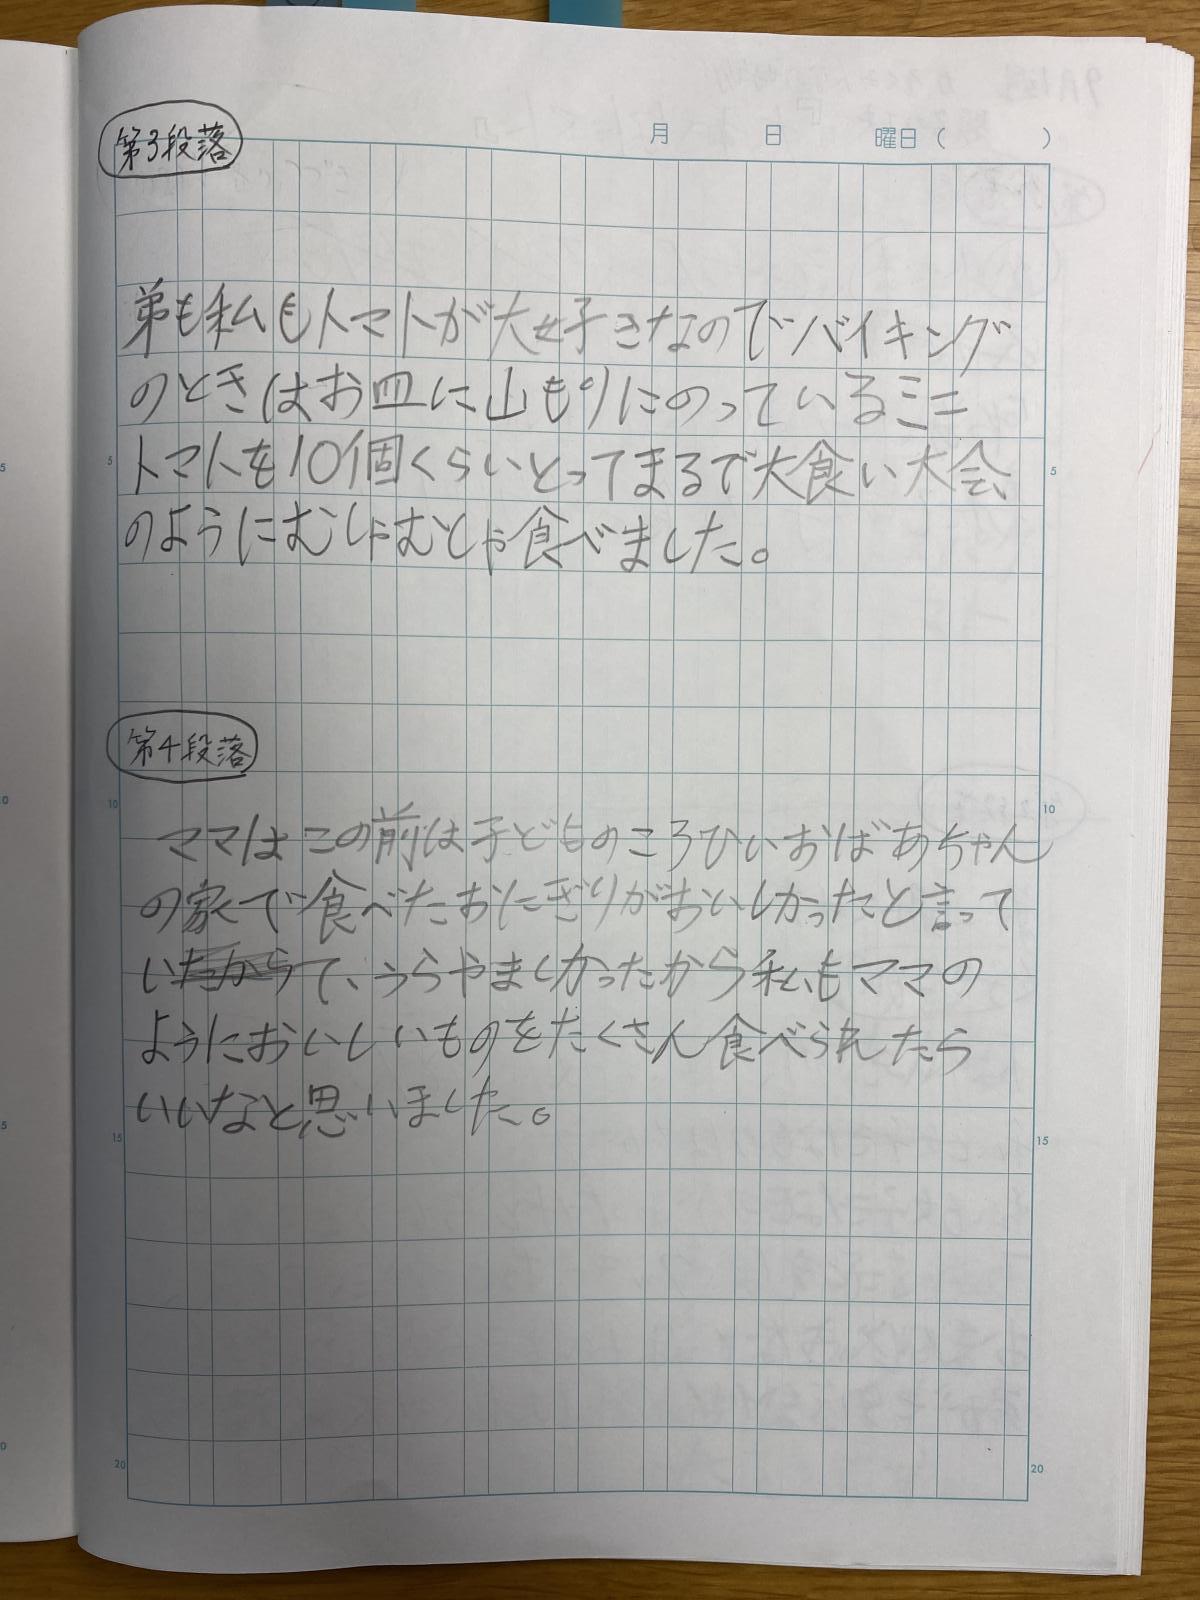 月 日 曜日( )
第3段落
弟も私もトマトが大好きなのでバイキング
のときはお皿に山もりにのっているミニ
5 トマトを10個くらいとってまるで大食い大会 5
のようにむしゃむしゃ食べました。
第4段落
10 10
ママはこの前は子どものころひいおばあちゃん
の家で食べたおにぎりがおいしかったと言って
いて、うらやましかったから私もママの
ようにおいしいものをたくさん食べられたら
いいなと思いました。
15 15
20 20